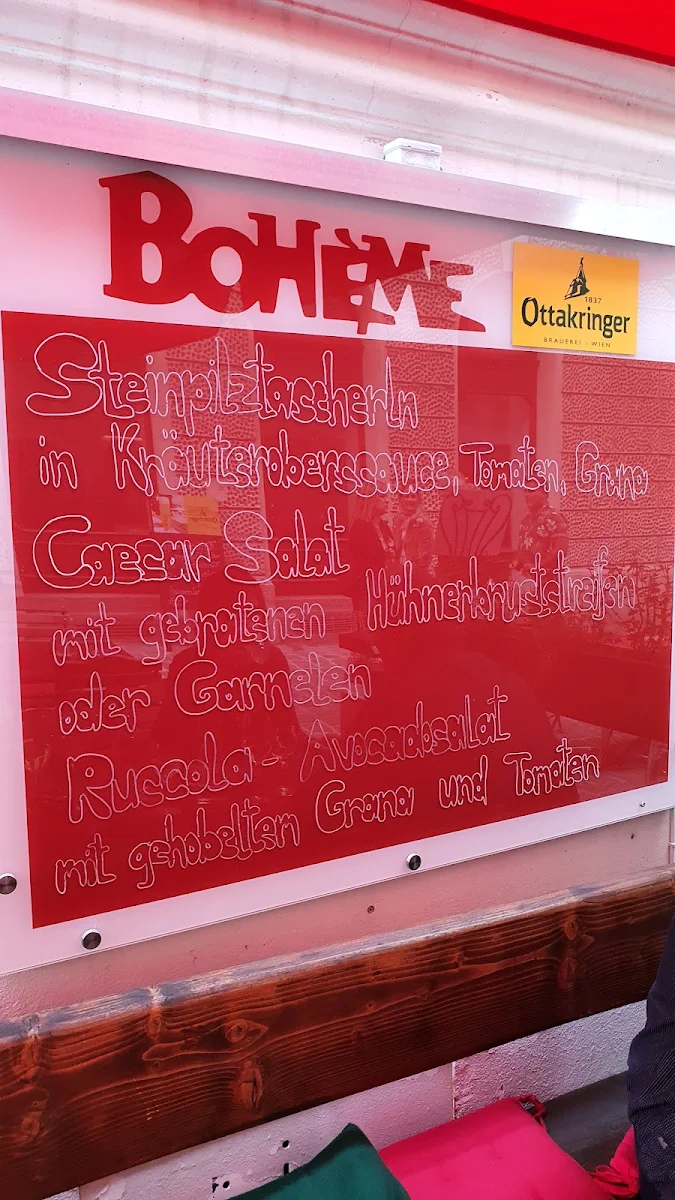 BOHÈME
1837
Ottakringer
BRAUEREI - WIEN
Steinpilztascherln
in Kräuterobers­sauce, Tomaten, Grana
Caesar Salat
mit gebratenen Hühnerbruststreifen
oder Garnelen
Ruccola - Avocadosalat
mit gehobeltem Grana und Tomaten